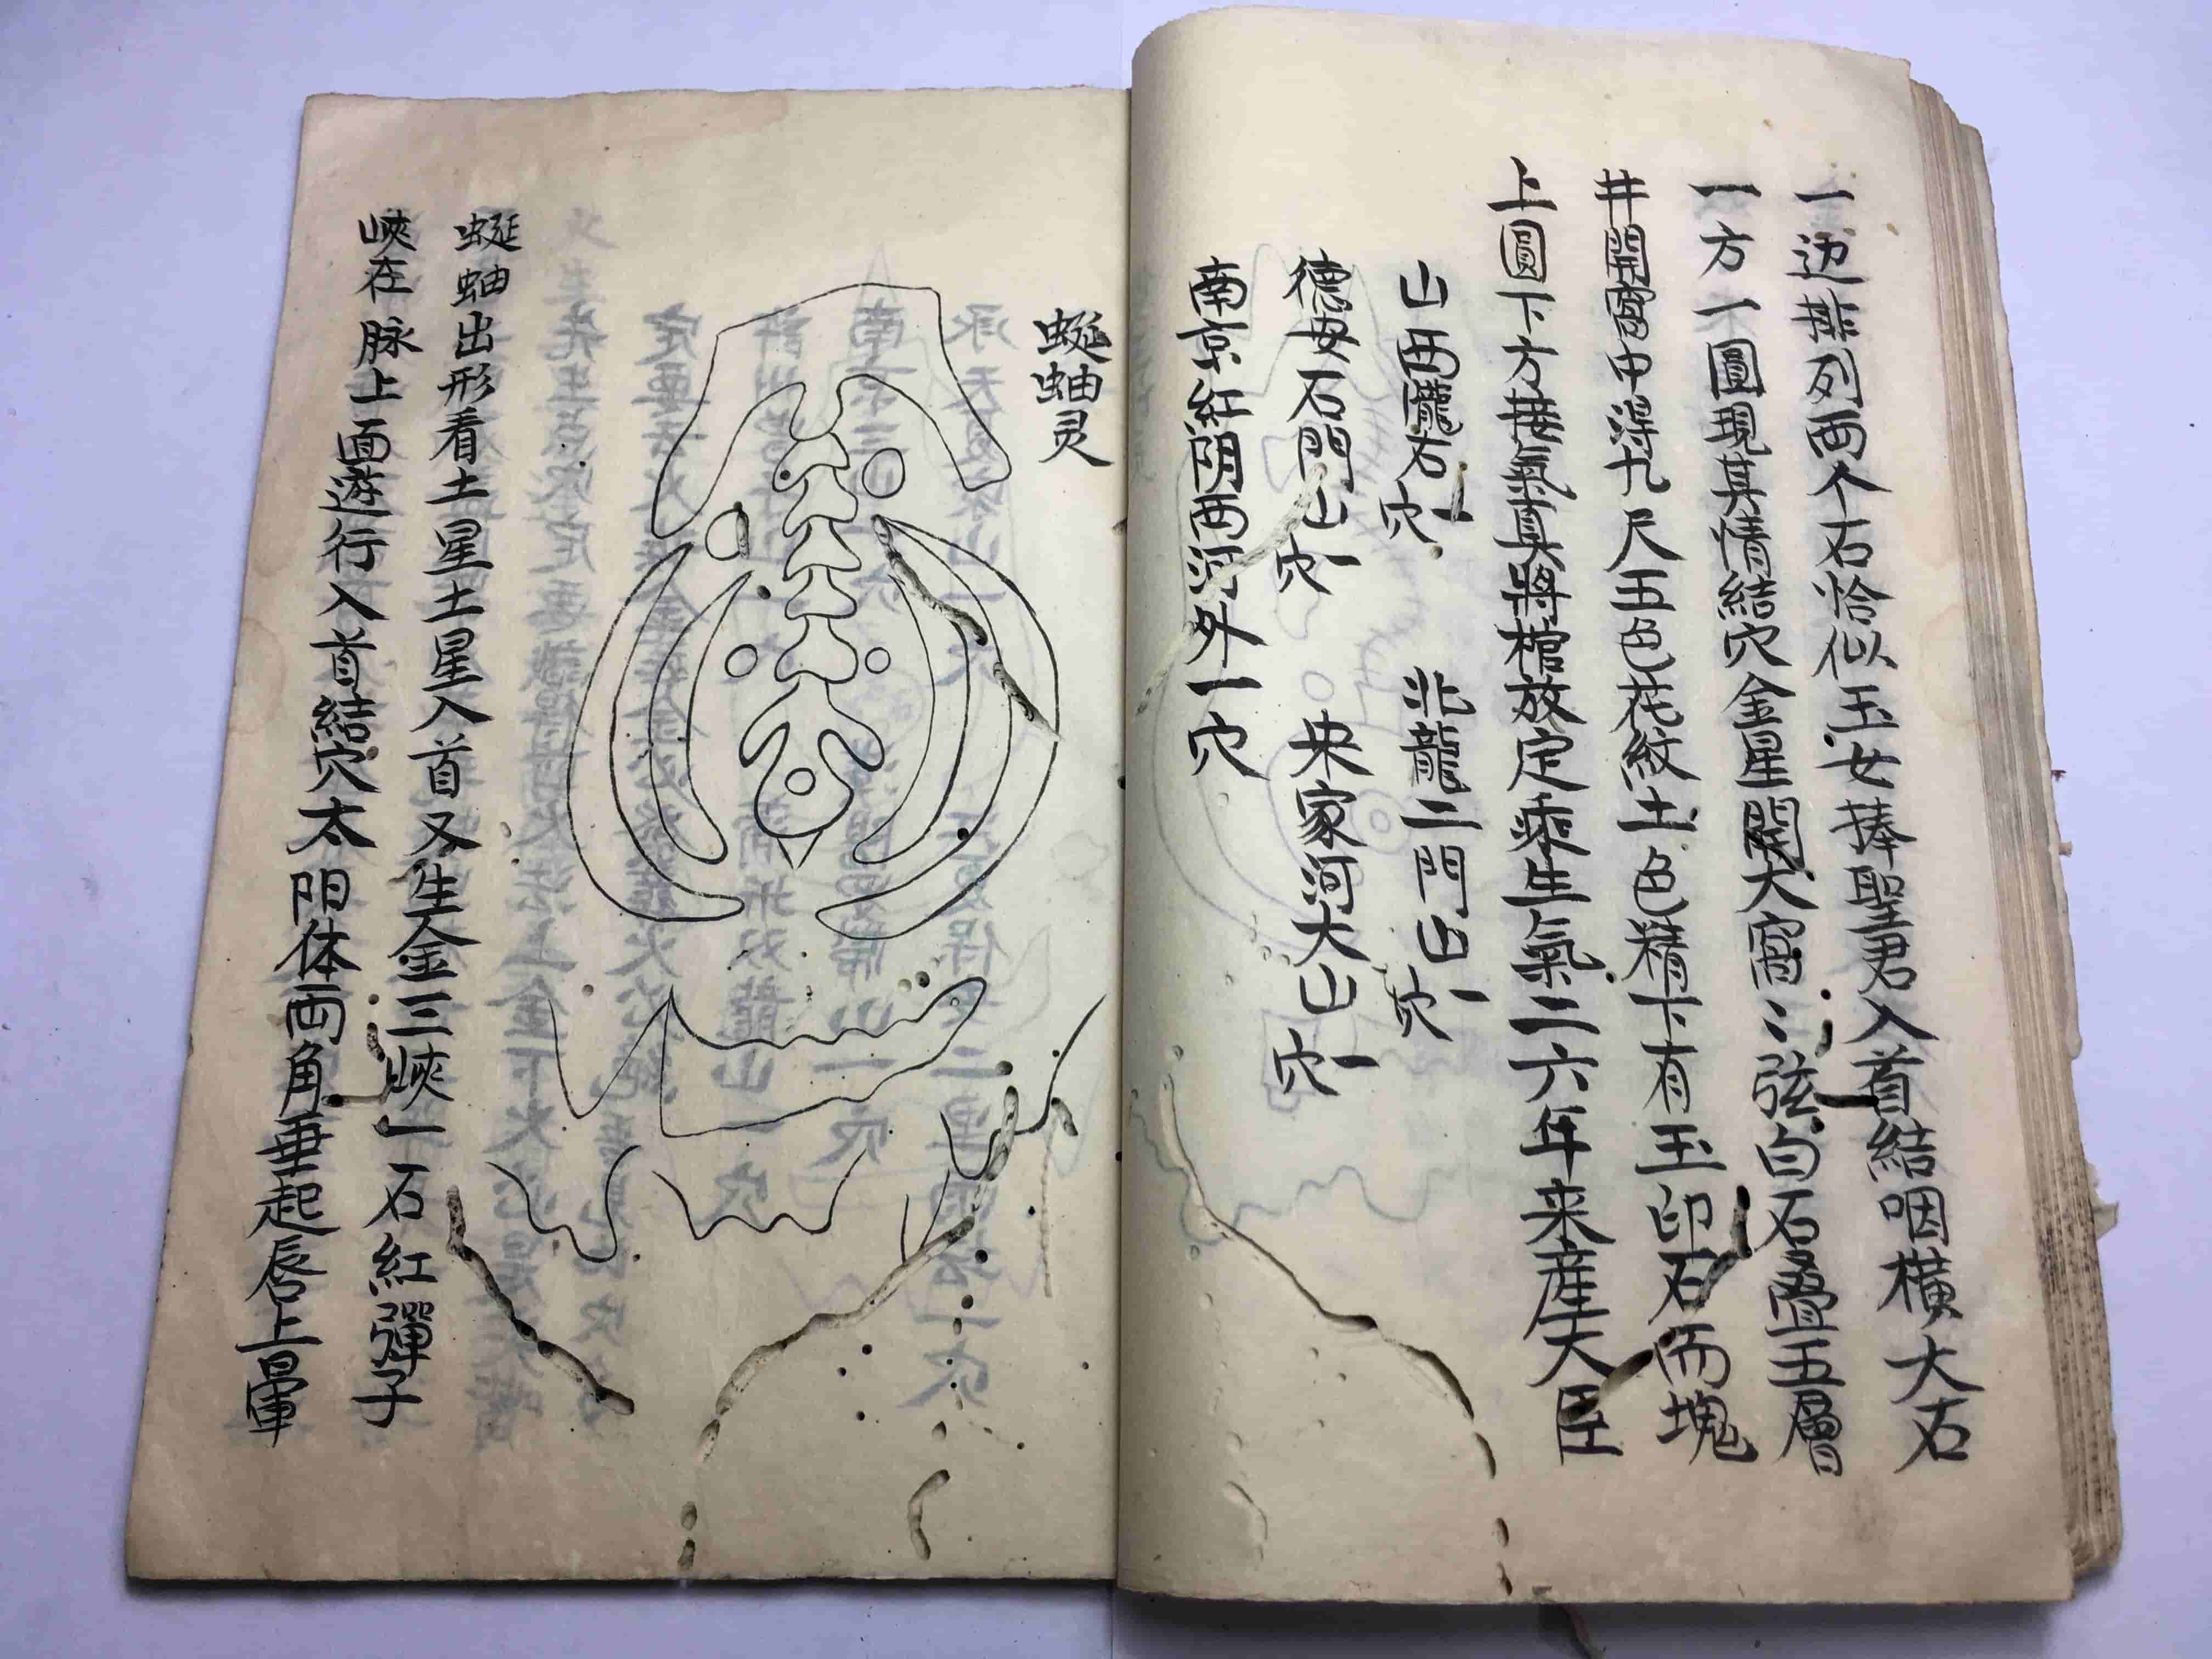 一边排列两个石恰似玉女捧聖君入首結咽橫大石
一方一圓現其情結穴金星開大窩二弦白石疊五層
井開窩中深九尺五色花紋土色精下有玉印石两塊
上圓下方接氣真將棺放定乘生氣二六年来産大臣
山西隴石一穴 北龍二門山一穴
德安石門山一穴 朱家河大山一穴
南京紅門西河外一穴
蜒蚰灵
蜒蚰出形看土星土星入首又生金三峽一石紅彈子
峽在脉上面遊行入首結穴太阳体两角垂起唇上軍